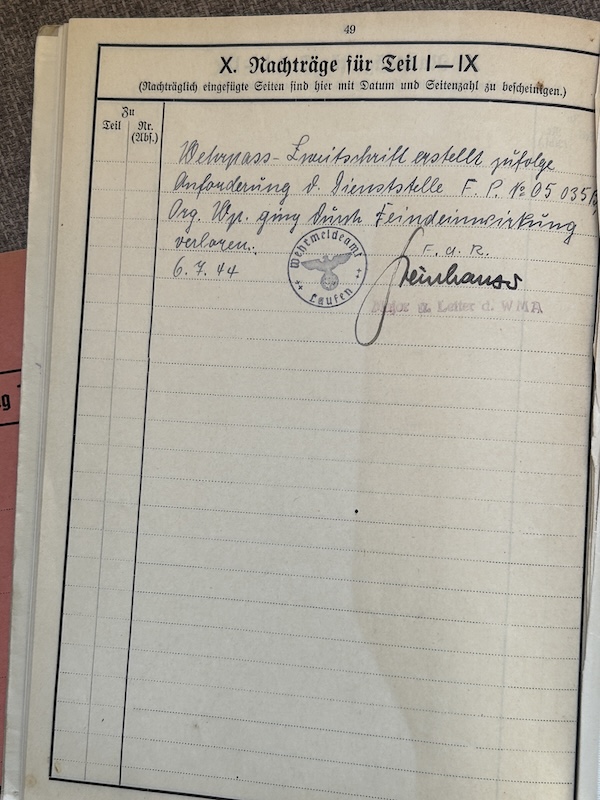 49
X. Nachträge für Teil I—IX
(Nachträglich eingefügte Seiten sind hier mit Datum und Seitenzahl zu bescheinigen.)
Zu
Teil Nr.
(Abs.)
Wehrpass-Zweitschrift erstellt zufolge
Anforderung d. Dienststelle F. P. № 05 035
Org. Wp. ging durch Feindeinwirkung
verloren.
6.7.44
Wehrmeldeamt
Laufen
F. d. R.
Major u. Leiter d. WMA
g